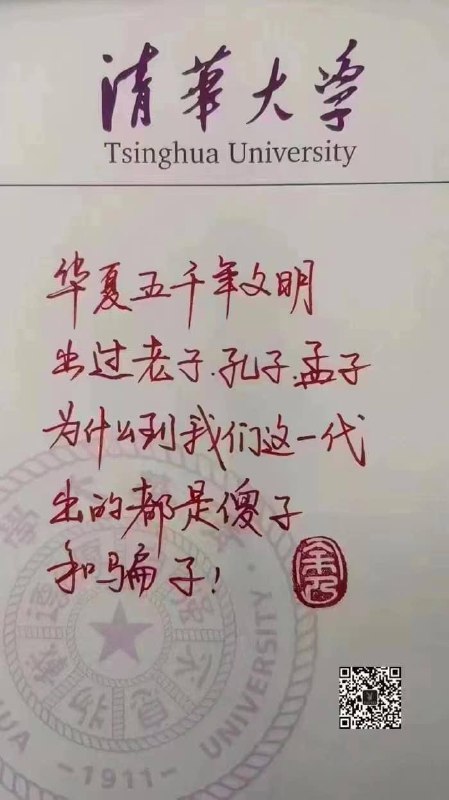 清華大学
Tsinghua University
华夏五千年文明
出过老子.孔子.孟子
为什么到我们这一代
出的都是傻子
和骗子!
UNIVERSITY
-1911-